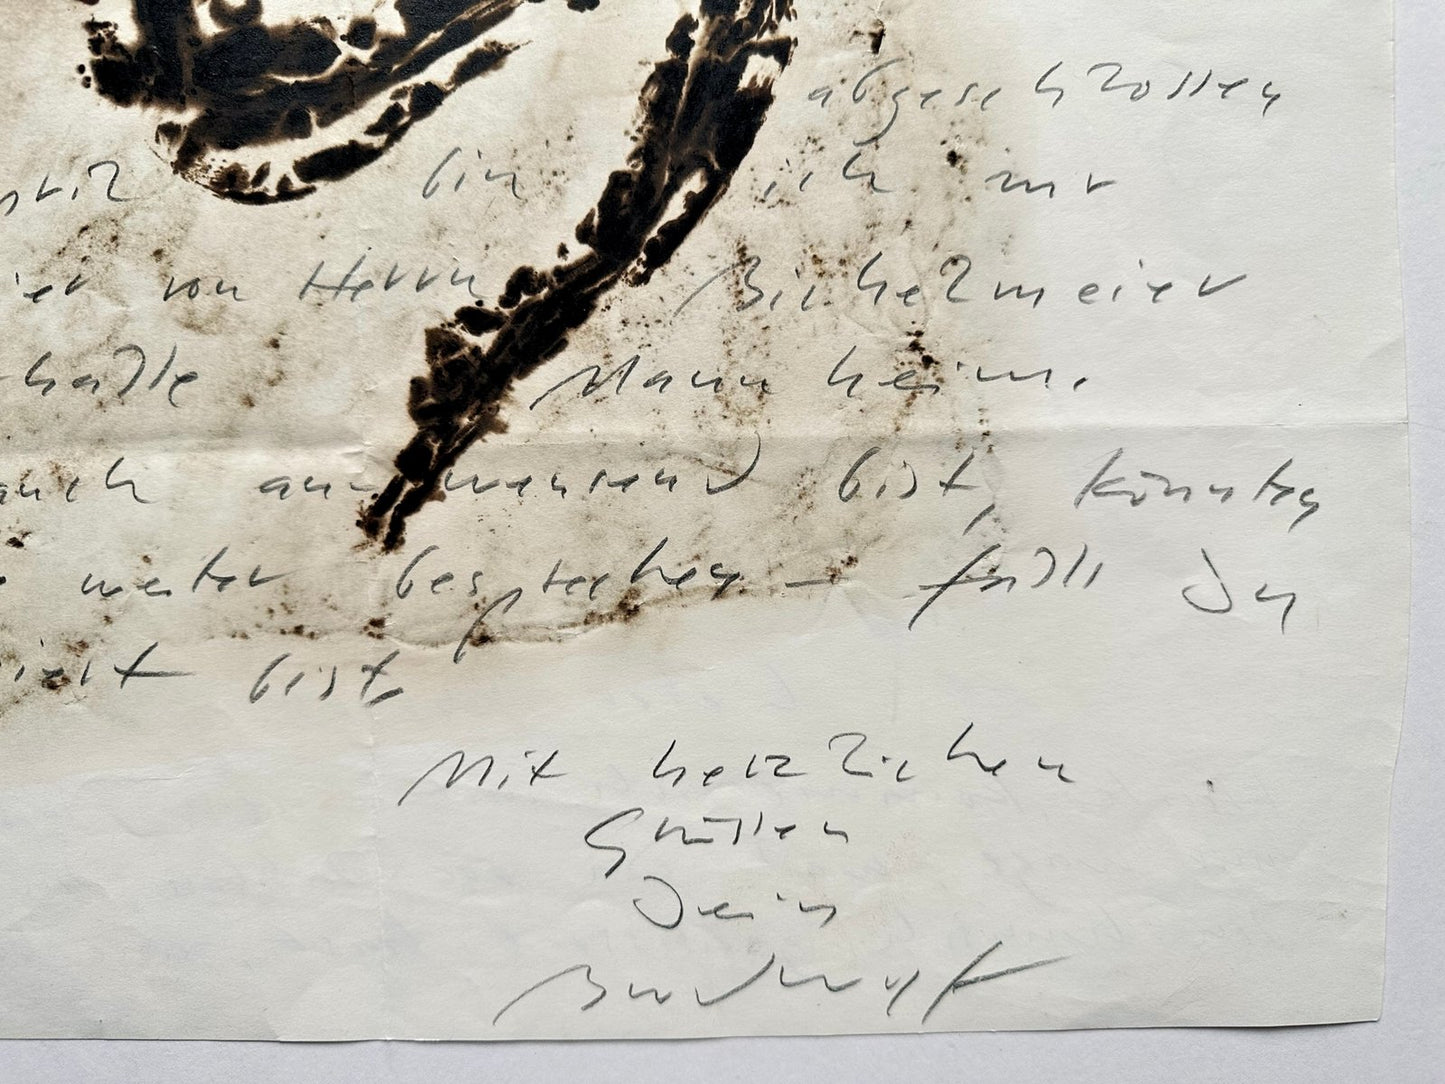 abgeschlossen
bin ich mit
von Herrn Bichelmeier
halle Mannheim.
auch anwesend bist, könnten
weiter besprechen – falls Du
bist.
Mit herzlichen
Grüssen
Dein